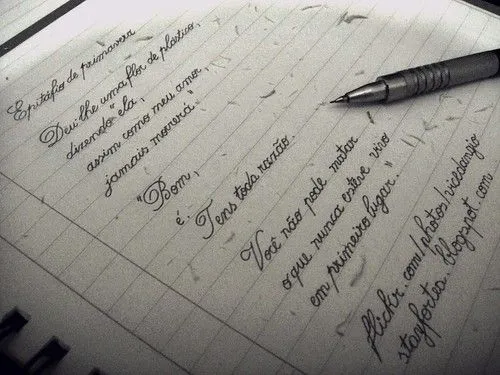 Epitáfio de primavera
Deu-lhe uma flor de plástico,
dizendo "ela,
assim como meu amor,
jamais morrerá"
"Bom,
é. Tens toda razão.
Você não pode matar
o que nunca esteve vivo
em primeiro lugar."
flickr.com/photos/viedangio
stayfortea.blogspot.com